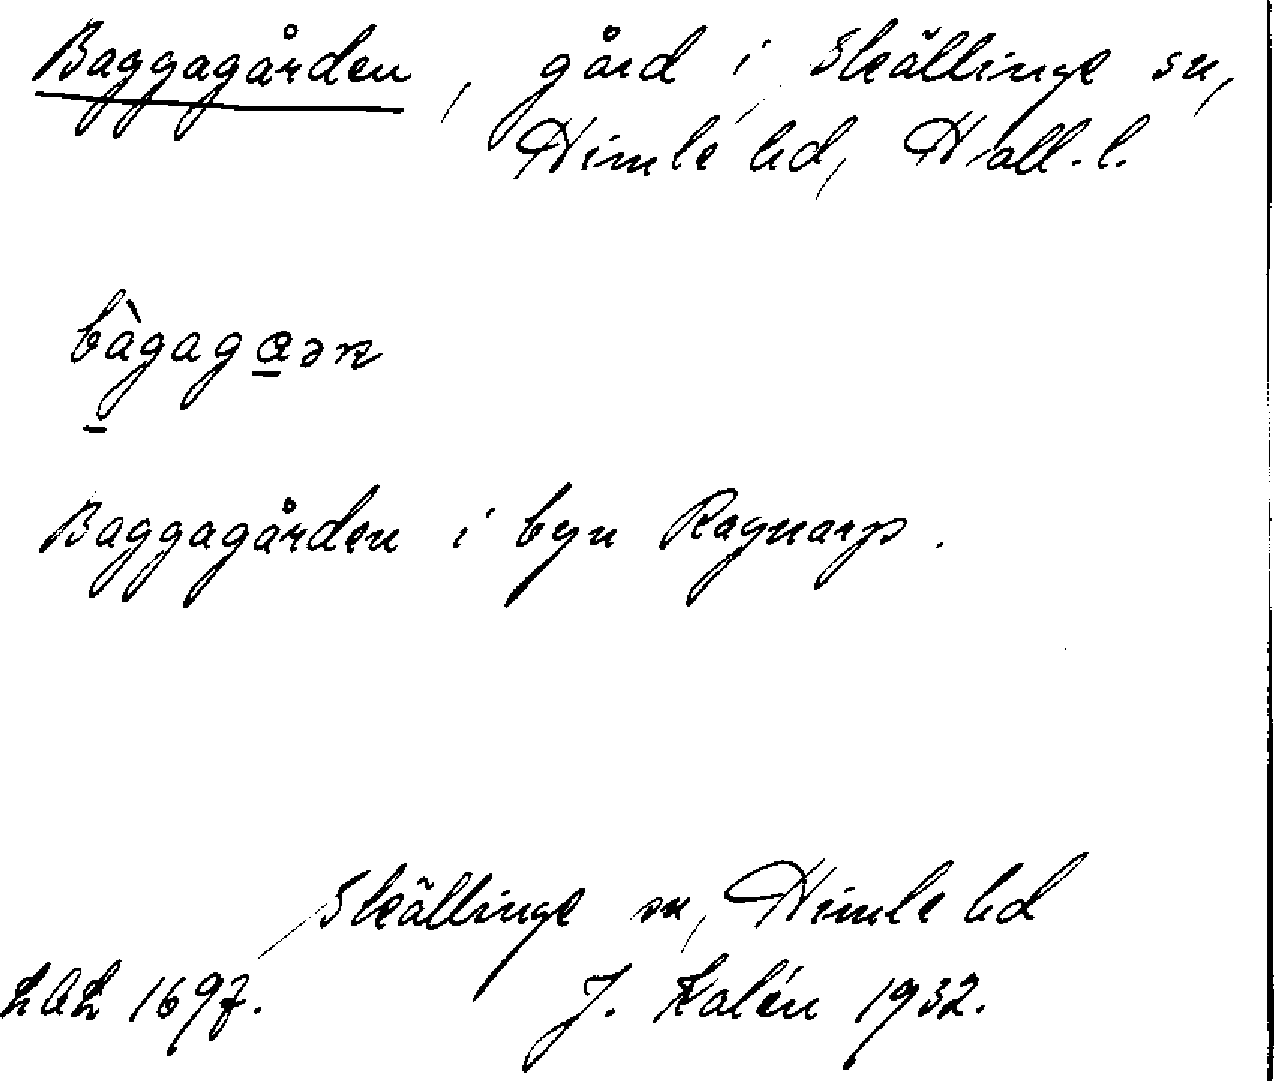 Baggagården, gård i Skällinge sn,
Himle hd, Hall. l.
bàgagaən
Baggagården i byn Ragnarp.
Skällinge sn, Himle hd
LAL 1697. J. Kalén 1932.